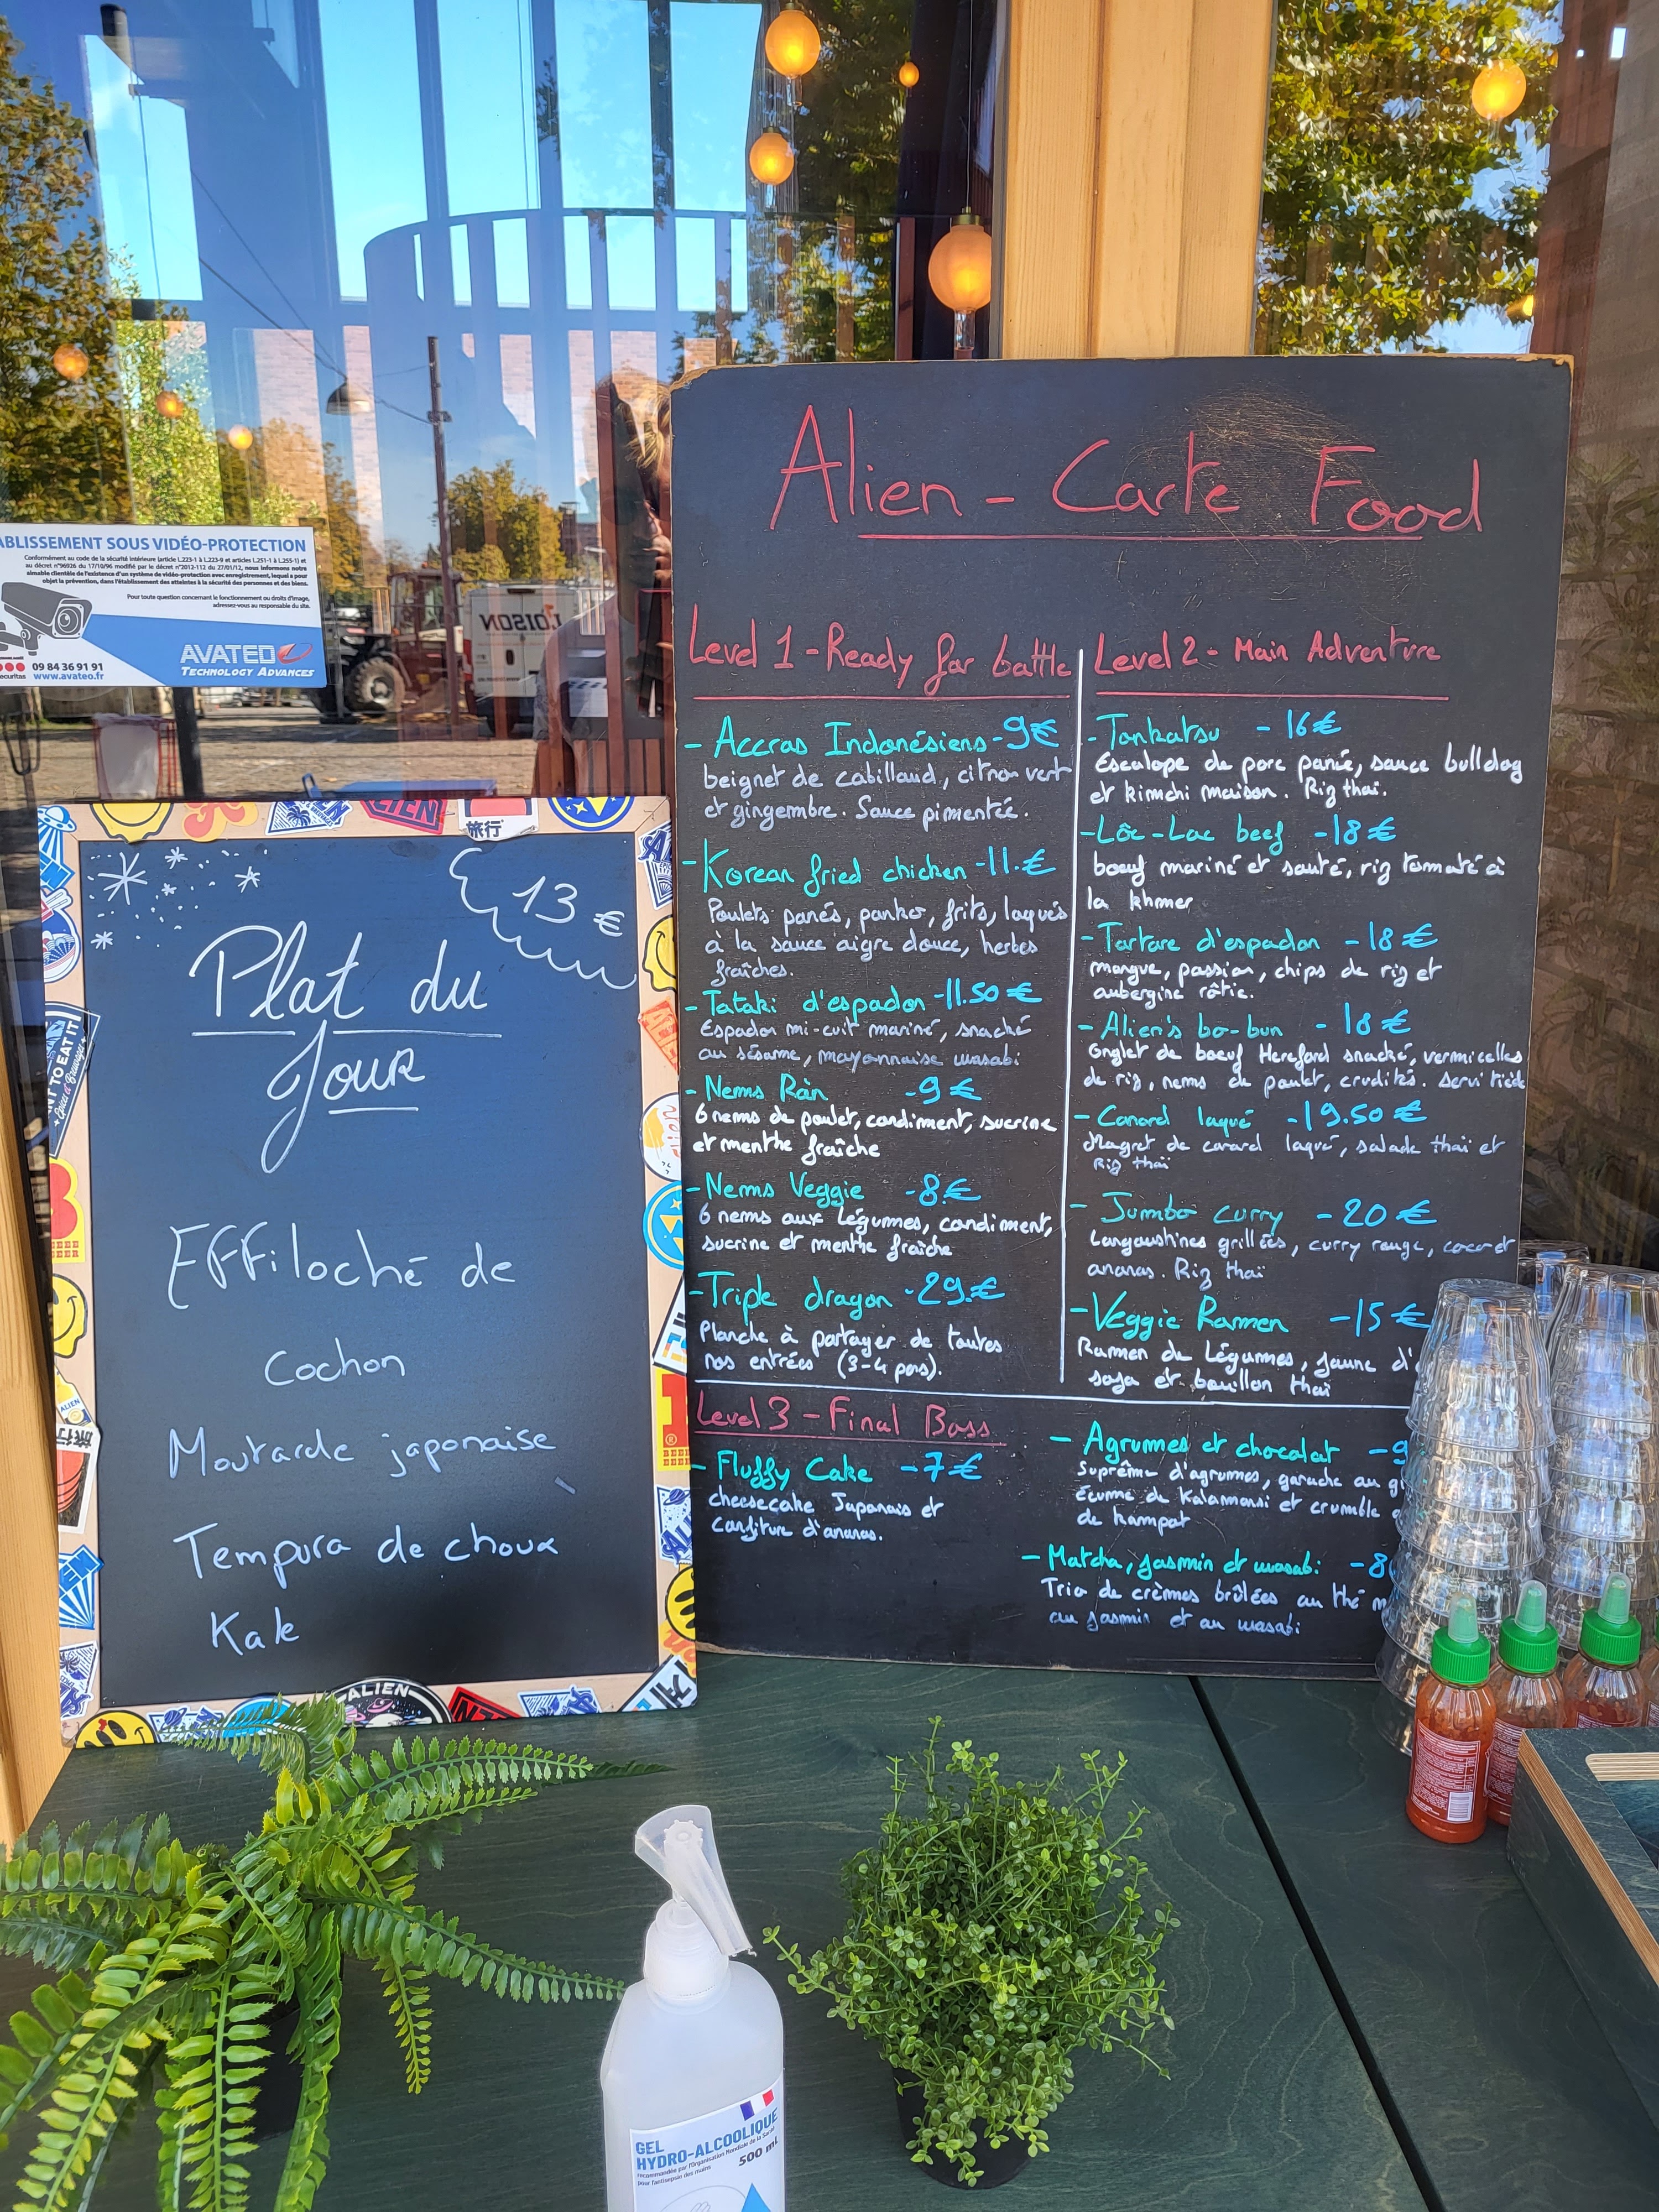 ABLISSEMENT SOUS VIDÉO-PROTECTION
Conformément au code de la sécurité intérieure (article L.223-1 à L.223-9 et articles L.251-1 à L.255-1) et
au décret n°96926 du 17/10/96 modifié par le décret n°2012-112 du 27/01/12, nous informons notre
aimable clientèle de l'existence d'un système de vidéo-protection avec enregistrement, lequel a pour
objet la prévention, dans l'établissement des atteintes à la sécurité des personnes et des biens.
Pour toute question concernant le fonctionnement ou droits d'image,
adressez-vous au responsable du site.
AVATEO
TECHNOLOGY ADVANCES
09 84 36 91 91
www.avateo.fr
LOISON
13 €
Plat du
Jour
Effiloché de
Cochon
Moutarde japonaise
Tempura de choux
Kale
Alien - Carte Food
Level 1 - Ready for battle
- Accras Indonésiens - 9€
beignet de cabillaud, citron vert
et gingembre. Sauce pimentée.
- Korean fried chicken - 11.€
Poulets panés, panko, frits, laqués
à la sauce aigre douce, herbes
fraîches.
- Tataki d'espadon - 11.50 €
Espadon mi-cuit mariné, snacké
au sésame, mayonnaise wasabi
- Nems Ràn - 9 €
6 nems de poulet, condiment, sucrine
et menthe fraîche
- Nems Veggie - 8.€
6 nems aux légumes, condiment,
sucrine et menthe fraîche
- Triple dragon - 29.€
Planche à partager de toutes
nos entrées (3-4 pers).
Level 2 - Main Adventure
- Tonkatsu - 16€
Escalope de porc panée, sauce bulldog
et kimchi maison. Riz thaï.
- Lôc-Lac beef - 18€
boeuf mariné et sauté, riz tomaté à
la khmer
- Tartare d'espadon - 18€
mangue, passion, chips de riz et
aubergine rôtie.
- Alien's bo-bun - 18€
Onglet de boeuf Hereford snacké, vermicelles
de riz, nems de poulet, crudités. Servi tiède
- Canard laqué - 19.50 €
Magret de canard laqué, salade thaï et
Riz thaï
- Jumbo curry - 20 €
Langoustines grillées, curry rouge, coco et
ananas. Riz thaï
- Veggie Ramen - 15 €
Ramen de légumes, jaune d'
soja et bouillon thaï
Level 3 - Final Boss
- Fluffy Cake - 7 €
cheesecake Japonais et
Confiture d'ananas.
- Agrumes et chocolat - 9
Suprême d'agrumes, ganache au gi
Écume de Kalamansi et crumble
de kampot
- Matcha, jasmin et wasabi - 8
Trio de crèmes brûlées au thé m
au jasmin et au wasabi
ALIEN
旅行
GEL
HYDRO-ALCOOLIQUE
recommandée par l'Organisation Mondiale de la Santé
pour l'antisepsie des mains
500 mL